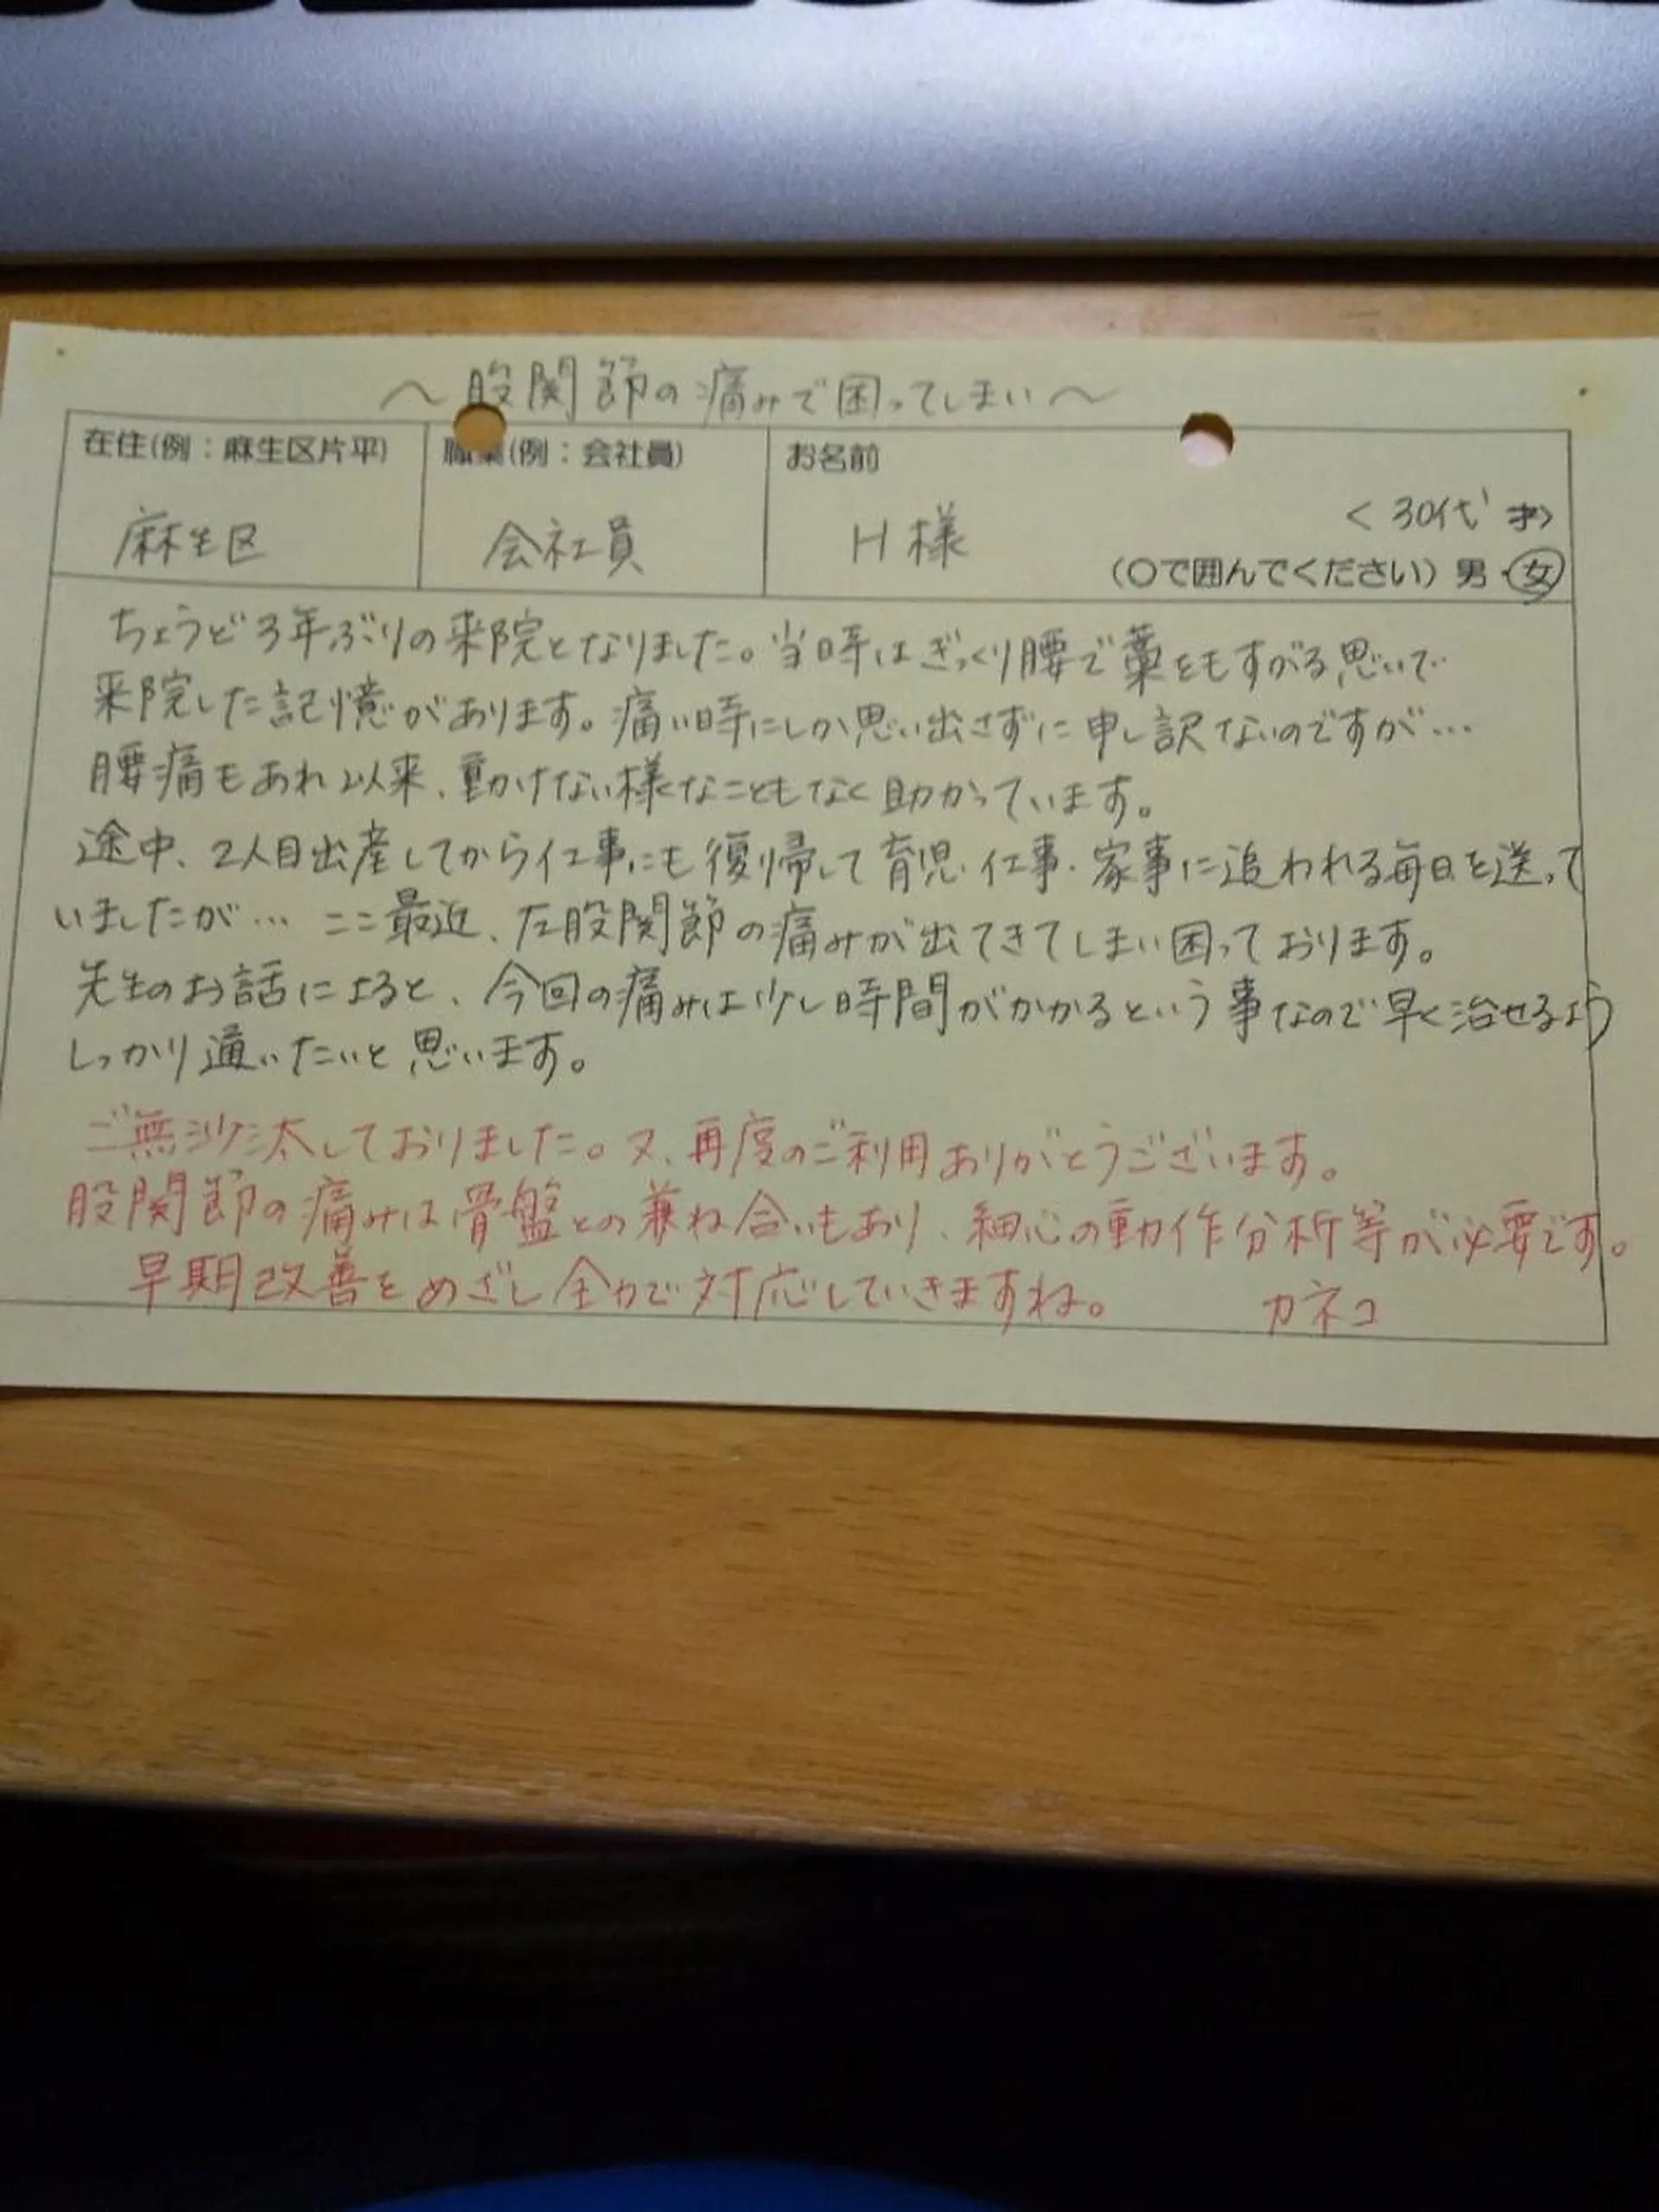 〜股関節の痛みで困ってしまい〜
在住(例：麻生区片平)
職業(例：会社員)
お名前
麻生区
会社員
H様
<30代 才>
(○で囲んでください) 男・女
ちょうど3年ぶりの来院となりました。当時はぎっくり腰で藁をもすがる思いで
来院した記憶があります。痛い時にしか思い出さずに申し訳ないのですが…
腰痛もあれ以来、動けない様なこともなく助かっています。
途中、2人目出産してから仕事にも復帰して育児・仕事・家事に追われる毎日を送って
いましたが… ここ最近、左股関節の痛みが出てきてしまい困っております。
先生のお話によると、今回の痛みは少し時間がかかるという事なので早く治せるよう
しっかり通いたいと思います。
ご無沙汰しておりました。又、再度のご利用ありがとうございます。
股関節の痛みは骨盤との兼ね合いもあり、細心の動作分析等が必要です。
早期改善をめざし全力で対応していきますね。 カネコ